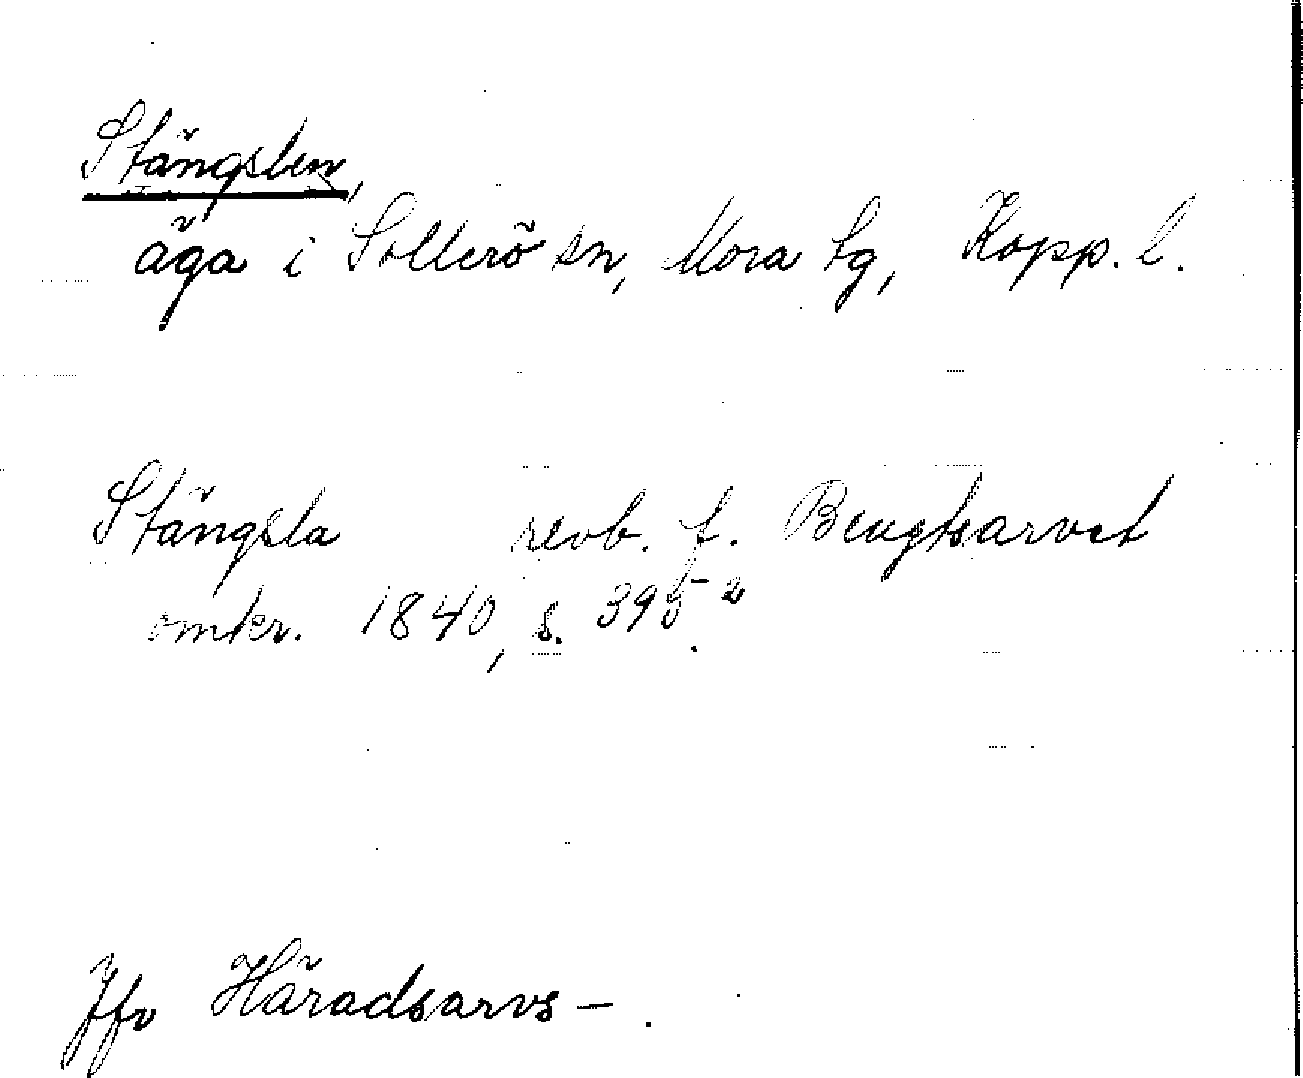 Stängslen,
äga i Sollerö sn, Mora tg, Kopp. l.
Stängsla revb. f. Bengtsarvet
omkr. 1840, s. 395 2.
Jfr Häradsarvs- .